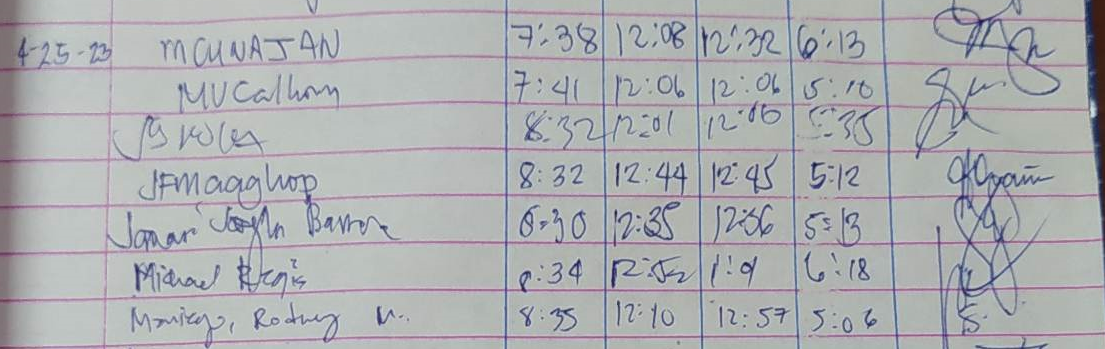 4-25-23 MCUNAJAN 7:38 12:08 12:32 6:13
MVCalhom 7:41 12:06 12:06 5:10
8:32 12:01 12:06 5:35
JFMagghop 8:32 12:44 12:45 5:12
Jomar 8:30 12:35 12:36 5:13
Michael Regis 8:34 12:52 1:01 6:18
Rodney M. 8:35 12:10 12:57 5:06